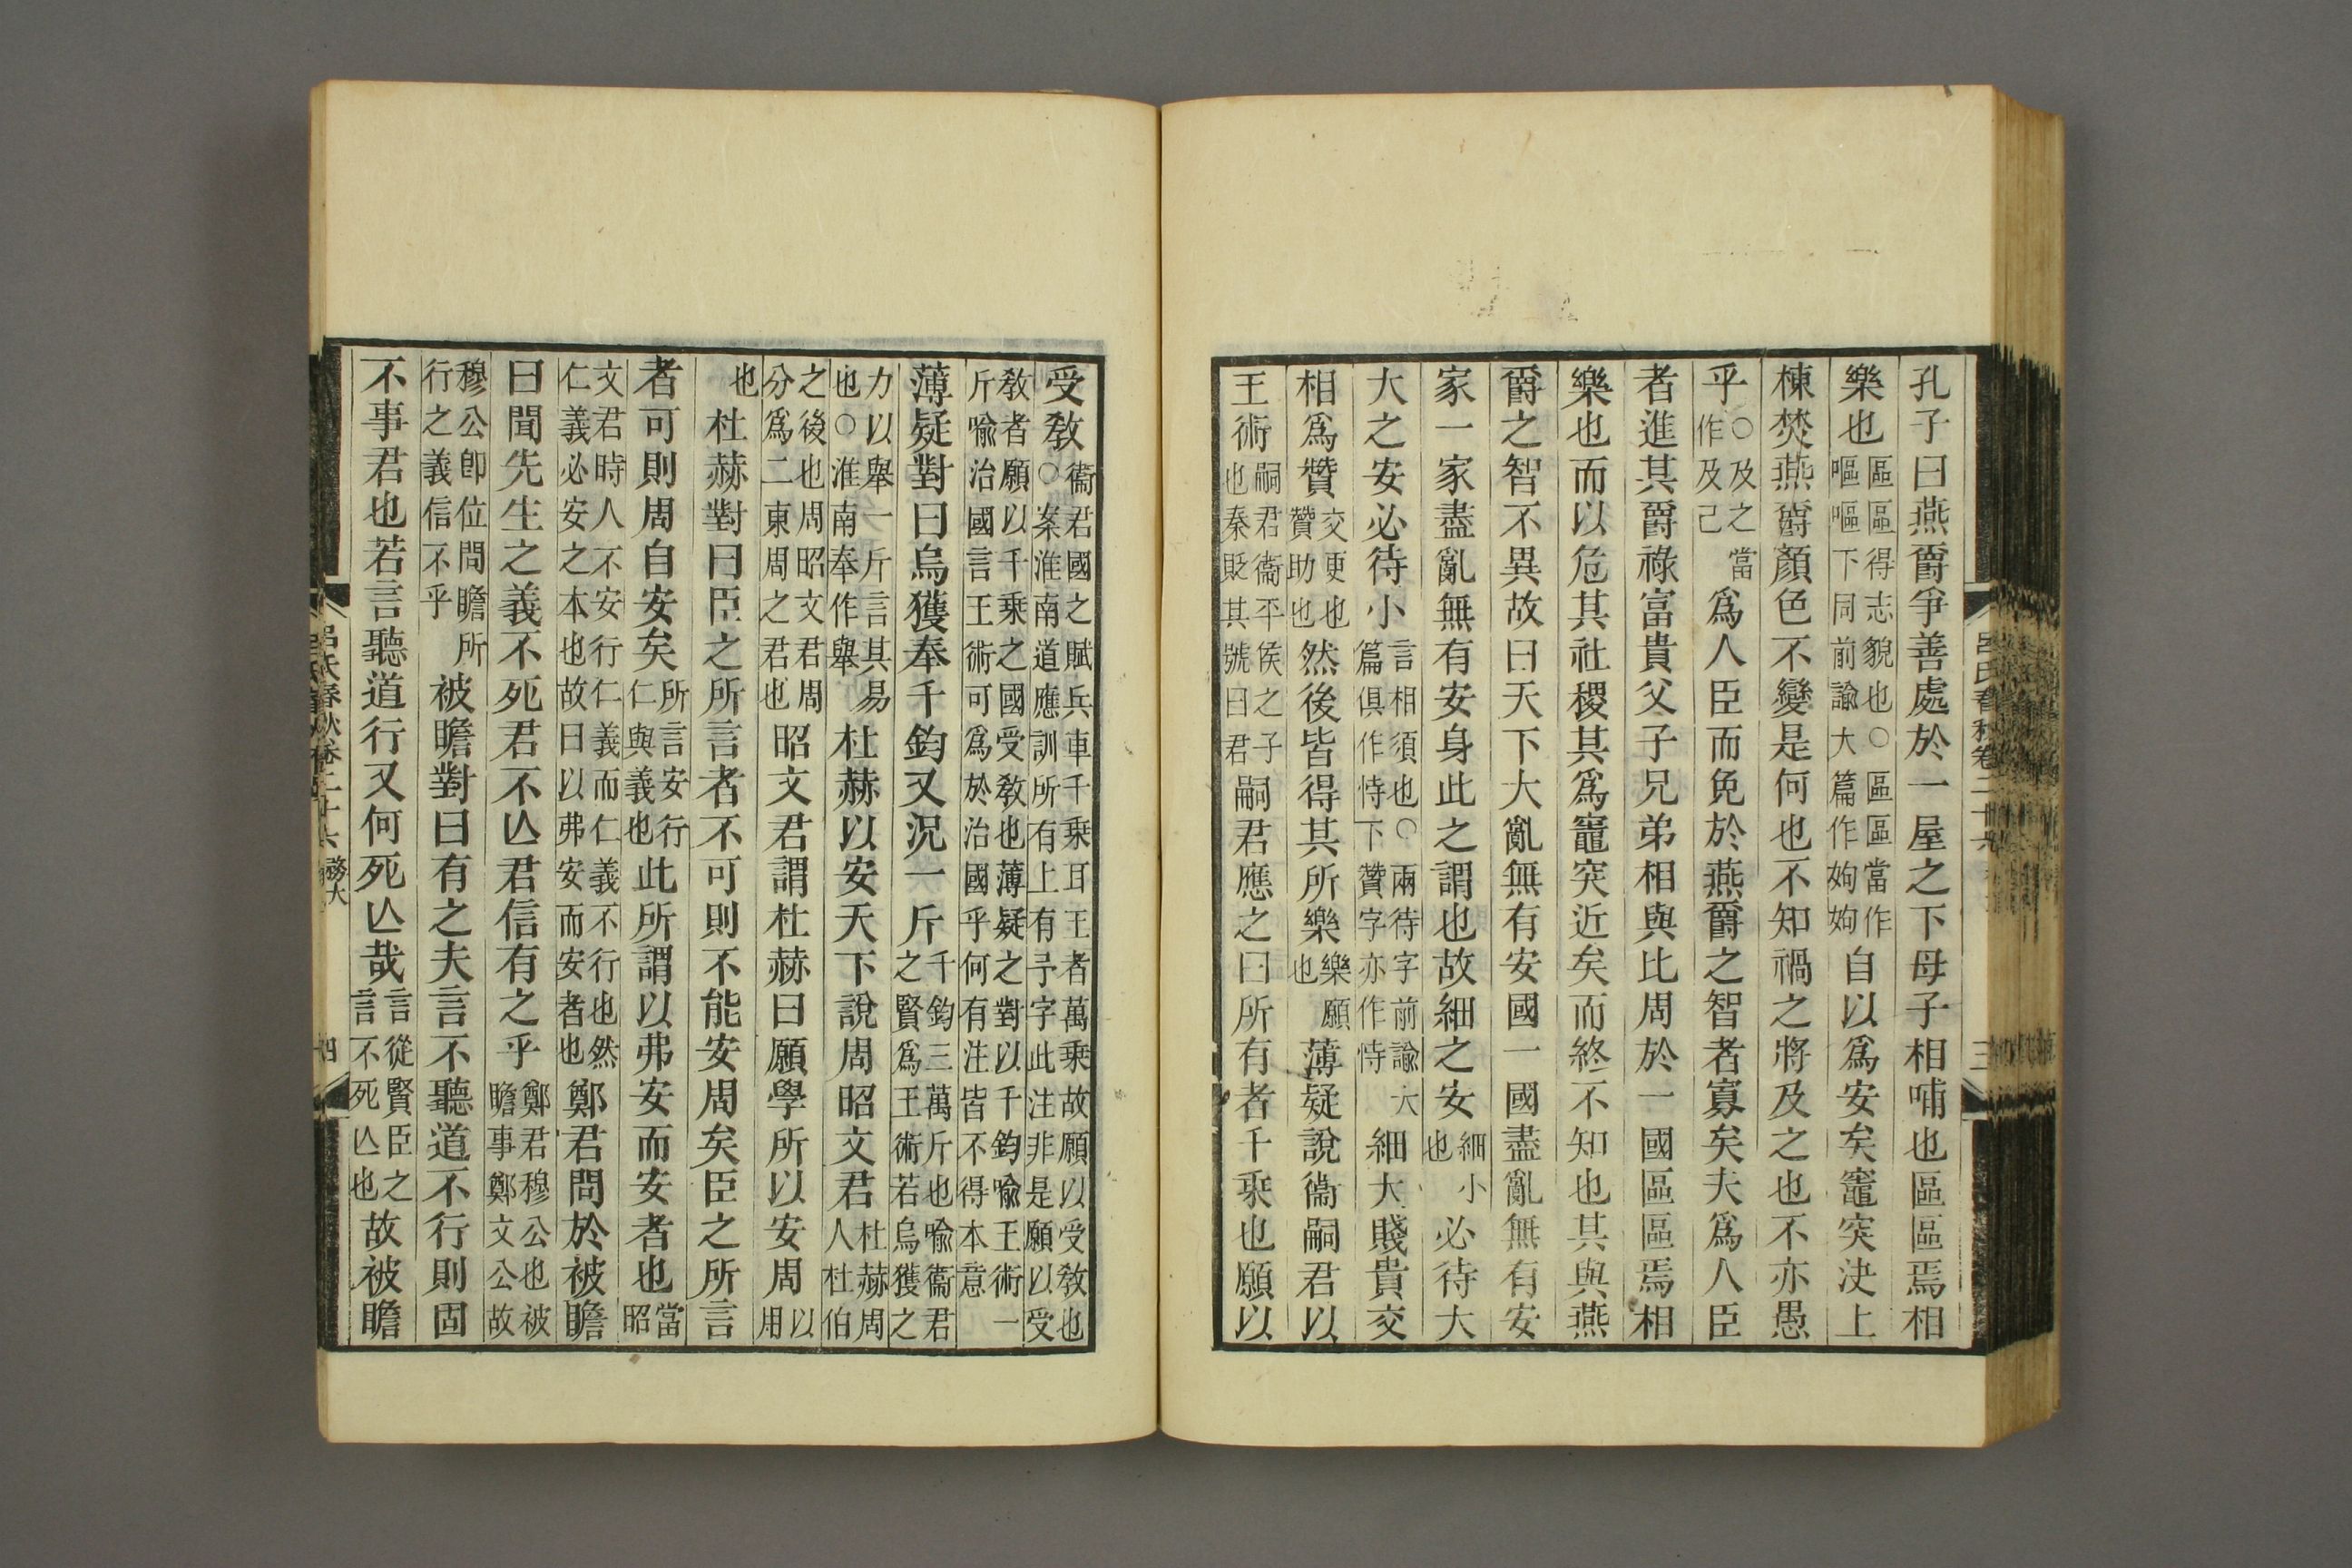 孔子曰燕爵爭善處於一屋之下母子相哺也區區焉相
樂也區區得志貌也○區區當作嘔嘔下同前諭大篇作姁姁自以爲安矣竈突決上
棟焚燕爵顏色不變是何也不知禍之將及之也不亦愚
乎○及之當作及己爲人臣而免於燕爵之智者寡矣夫爲人臣
者進其爵祿富貴父子兄弟相與比周於一國區區焉相
樂也而以危其社稷其爲竈突近矣而終不知也其與燕
爵之智不異故曰天下大亂無有安國一國盡亂無有安
家一家盡亂無有安身此之謂也故細之安細小也必待大
大之安必待小言相須也○兩待字前諭大篇俱作恃下贊字亦作恃細大賤貴交
相爲贊交更也贊助也然後皆得其所樂樂願也薄疑說衞嗣君以
王術嗣君衞平侯之子也秦貶其號曰君嗣君應之曰所有者千乘也願以
受敎衞君國之賦兵車千乘耳王者萬乘故願以受敎也○案淮南道應訓所有上有予字此注非是願以受
敎者願以千乘之國受敎也薄疑之對以千鈞喻王術一斤喻治國言王術可爲於治國乎何有注皆不得本意
薄疑對曰烏獲奉千鈞又況一斤千鈞三萬斤也喻衞君之賢爲王術若烏獲之
力以舉一斤言其易也○淮南奉作舉杜赫以安天下說周昭文君杜赫周人杜伯
之後也周昭文君周分爲二東周之君也昭文君謂杜赫曰願學所以安周以用
也杜赫對曰臣之所言者不可則不能安周矣臣之所言
者可則周自安矣所言安行仁與義也此所謂以弗安而安者也當昭
文君時人不安行仁義而仁義不行也然仁義必安之本也故曰以弗安而安者也鄭君問於被瞻
曰聞先生之義不死君不亾君信有之乎鄭君穆公也被瞻事鄭文公故
穆公卽位問瞻所行之義信不乎被瞻對曰有之夫言不聽道不行則固
不事君也若言聽道行又何死亾哉言從賢臣之言不死亾也故被瞻
呂氏春秋卷二十六 務大 四